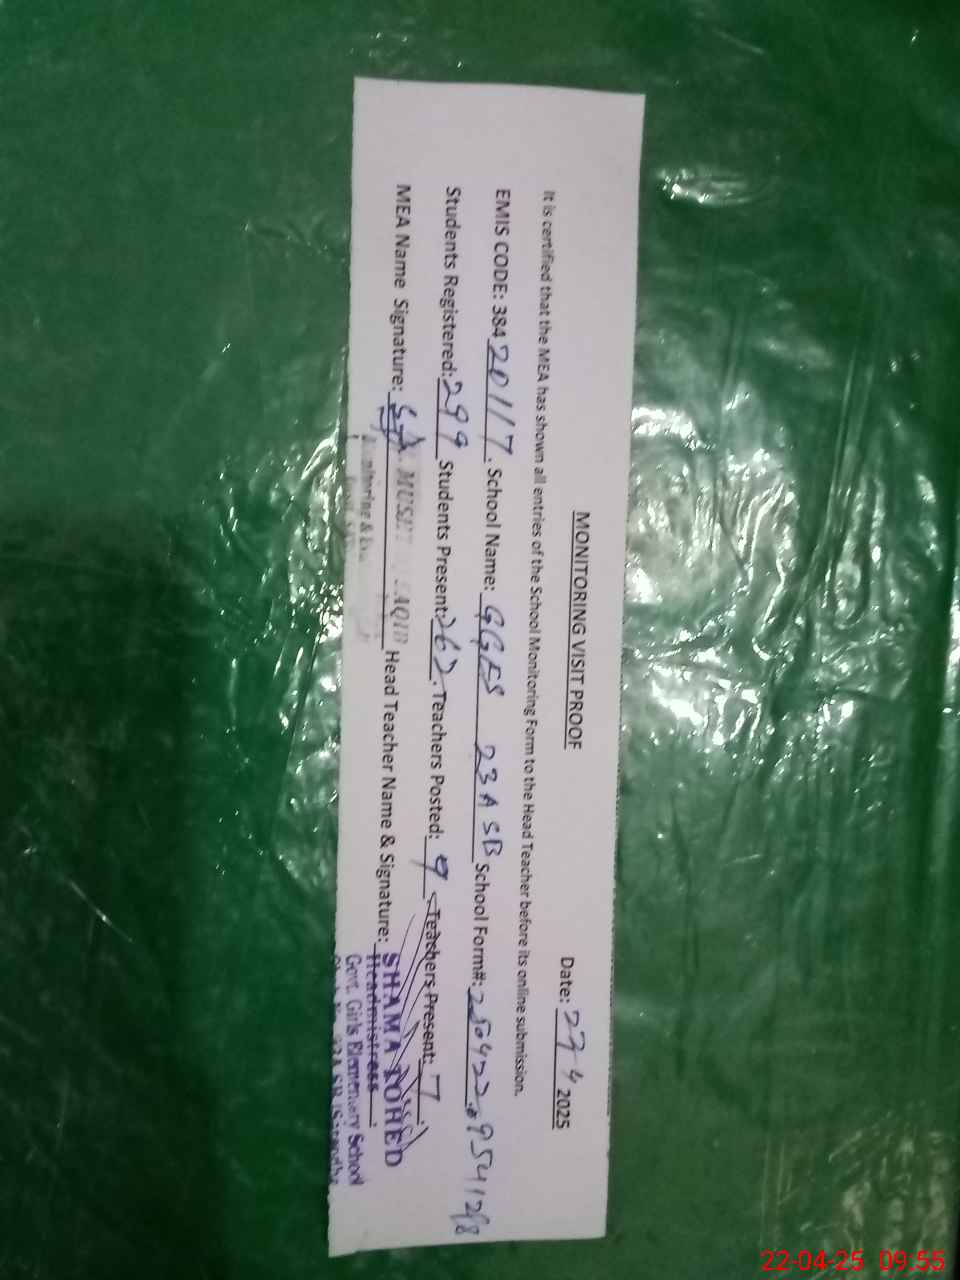 MONITORING VISIT PROOF
Date: 22-4 2025
It is certified that the MEA has shown all entries of the School Monitoring Form to the Head Teacher before its online submission.
EMIS CODE: 38420117. School Name: GGES 23 A SB School Form#: 250422
Students Registered: 299 Students Present: 262. Teachers Posted: 9 Teachers Present: 7
MEA Name Signature: Head Teacher Name & Signature: SHAMA TOHED
Headmistress
Monitoring & Govt. Girls Elementary School
22-04-25 09.55